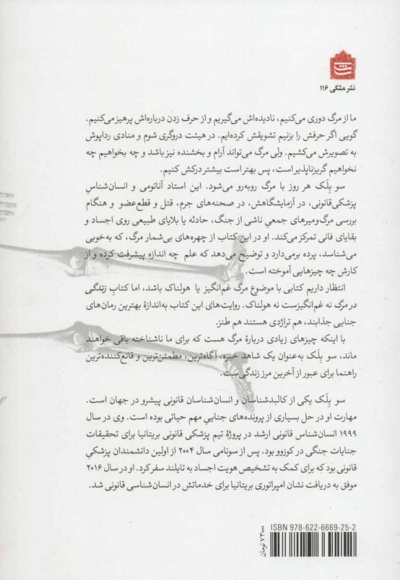 نشر مثلثی ۱۱۶
ما از مرگ دوری می‌کنیم، نادیده‌اش می‌گیریم و از حرف زدن درباره‌اش پرهیز می‌کنیم.
گویی اگر حرفش را بزنیم تشویقش کرده‌ایم. در هیئت دروگری شوم و منادی رداپوش
به تصویرش می‌کشیم. ولی مرگ می‌تواند آرام و بخشنده نیز باشد و چه بخواهیم چه
نخواهیم گریزناپذیر است، پس بهتر است بیشتر درکش کنیم.
سو بِلَک هر روز با مرگ روبه‌رو می‌شود. این استاد آناتومی و انسان‌شناسِ
پزشکی‌قانونی، در آزمایشگاهش، در صحنه‌های جرم، قتل و قطع‌عضو و هنگام
بررسی مرگ‌ومیرهای جمعیِ ناشی از جنگ، حادثه یا بلایای طبیعی روی اجساد و
بقایای فانی تمرکز می‌کند. او در این کتاب از چهره‌های بی‌شمار مرگ، که به‌خوبی
می‌شناسد، پرده برمی‌دارد و توضیح می‌دهد که علم چه اندازه پیشرفت کرده و از
کارش چه چیزهایی آموخته است.
انتظار داریم کتابی با موضوع مرگ غم‌انگیز یا هولناک باشد، اما کتاب زندگی
در مرگ نه غم‌انگیزست نه هولناک. روایت‌های این کتاب به‌اندازهٔ بهترین رمان‌های
جنایی جذابند، هم تراژدی هستند هم طنز.
با اینکه چیزهای زیادی دربارهٔ مرگ هست که برای ما ناشناخته باقی خواهند
ماند، سو بِلَک به‌عنوان یک شاهد خبره، آگاه‌ترین، مطمئن‌ترین و قانع‌کننده‌ترین
راهنما برای عبور از آخرین مرز زندگی‌ست.
سو بِلَک یکی از کالبدشناسان و انسان‌شناسان قانونی پیشرو در جهان است.
مهارت او در حل بسیاری از پرونده‌های جنایی مهم حیاتی بوده است. وی در سال
۱۹۹۹ انسان‌شناس قانونی ارشد در پروژهٔ تیم پزشکی قانونی بریتانیا برای تحقیقات
جنایات جنگی در کوزوو بود. پس از سونامی سال ۲۰۰۴ از اولین دانشمندان پزشکیِ
قانونی بود که برای کمک به تشخیص هویت اجساد به تایلند سفر کرد. او در سال ۲۰۱۶
موفق به دریافت نشان امپراتوری بریتانیا برای خدماتش در انسان‌شناسی قانونی شد.
ISBN 978-622-6669-25-2
۷۳۰۰۰ تومان